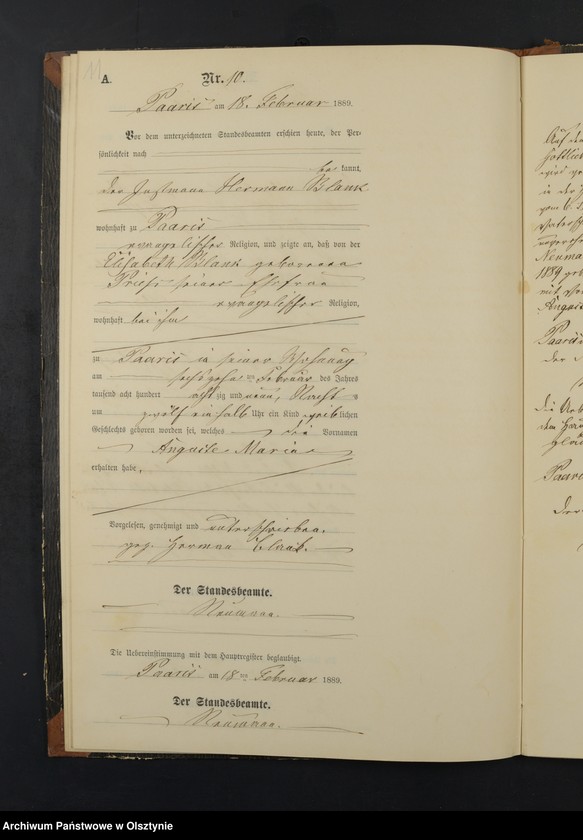 11
A.
Nr. 10.
Paaris am 18. Februar 1889.
Vor dem unterzeichneten Standesbeamten erschien heute, der Per-
sönlichkeit nach
be kannt,
der Instmann Hermann Blank
wohnhaft zu Paaris
evangelischer Religion, und zeigte an, daß von der
Elisabeth Blank geborenen
seiner Ehefrau
evangelischer Religion,
wohnhaft bei ihm
zu Paaris in seiner Wohnung
am sechszehnten Februar des Jahres
tausend acht hundert acht zig und neun, Nacht
um zwölf ein halb Uhr ein Kind weib lichen
Geschlechts geboren worden sei, welches die Vornamen
Auguste Maria
erhalten habe.
Vorgelesen, genehmigt und unterschrieben.
gez. Herman Blank.
Der Standesbeamte.
Neumann.
Die Uebereinstimmung mit dem Hauptregister beglaubigt.
Paaris am 18ten Februar 1889.
Der Standesbeamte.
Neumann.
Auf
in der
vom 6.
1889
Paaris
Der
Paaris
Der
Archiwum Państwowe w Olsztynie